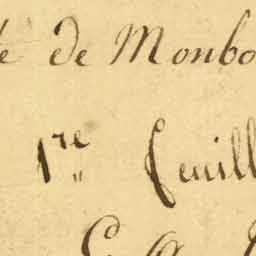 de Monbo
1re Feuill